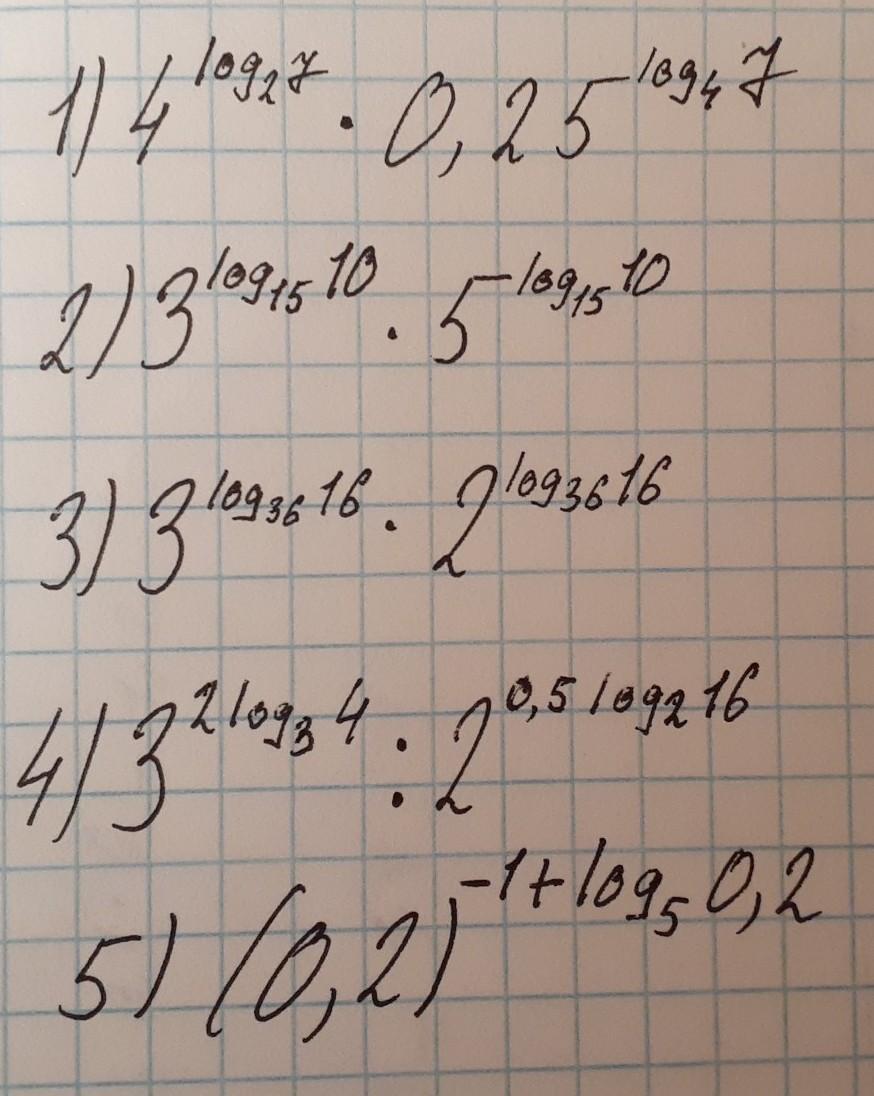 1) 4^{log₂7} · 0,25^{log₄7}
2) 3^{log₁₅10} · 5^{log₁₅10}
3) 3^{log₃₆16} · 2^{log₃₆16}
4) 3^{2log₃4} : 2^{0,5log₂16}
5) (0,2)^{-1+log₅0,2}